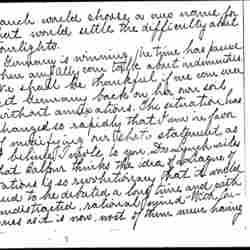 would choose a new name for
would settle the difficulty about
Germany is winning, the time has passed
when we idly can talk about indemnities.
We shall be thankful if we can ever
get Germany back on her own soil
without annexations. The situation has
changed so rapidly that I am in favor
of modifying our that statement, as
I believe I wrote to you. Dr. Lynch writes
that Balfour thinks the idea of a League of
Nations is so revolutionary that it would
need to be debated a long time and with
undistracted, rational mind. With
as it is now, most of them having